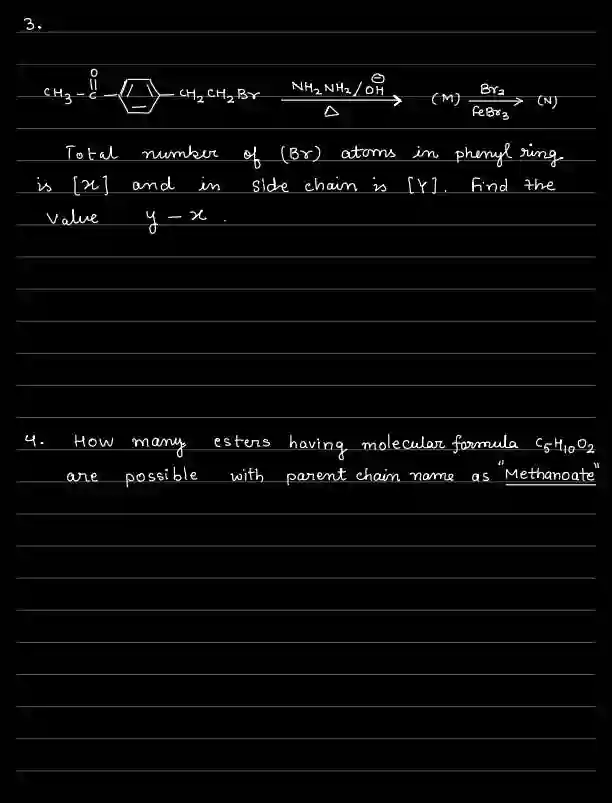 3.
CH3-C(=O)-⌬-CH2CH2Br NH2NH2/OH⊖ Δ → (M) Br2 FeBr3 → (N)
Total number of (Br) atoms in phenyl ring
is [x] and in side chain is [Y]. Find the
value y - x.
4. How many esters having molecular formula C5H10O2
are possible with parent chain name as "Methanoate"